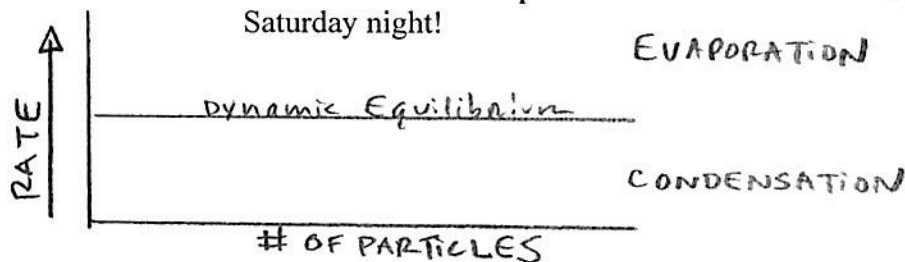 Saturday night!
EVAPORATION
Dynamic Equilibrium
RATE
CONDENSATION
# OF PARTICLES